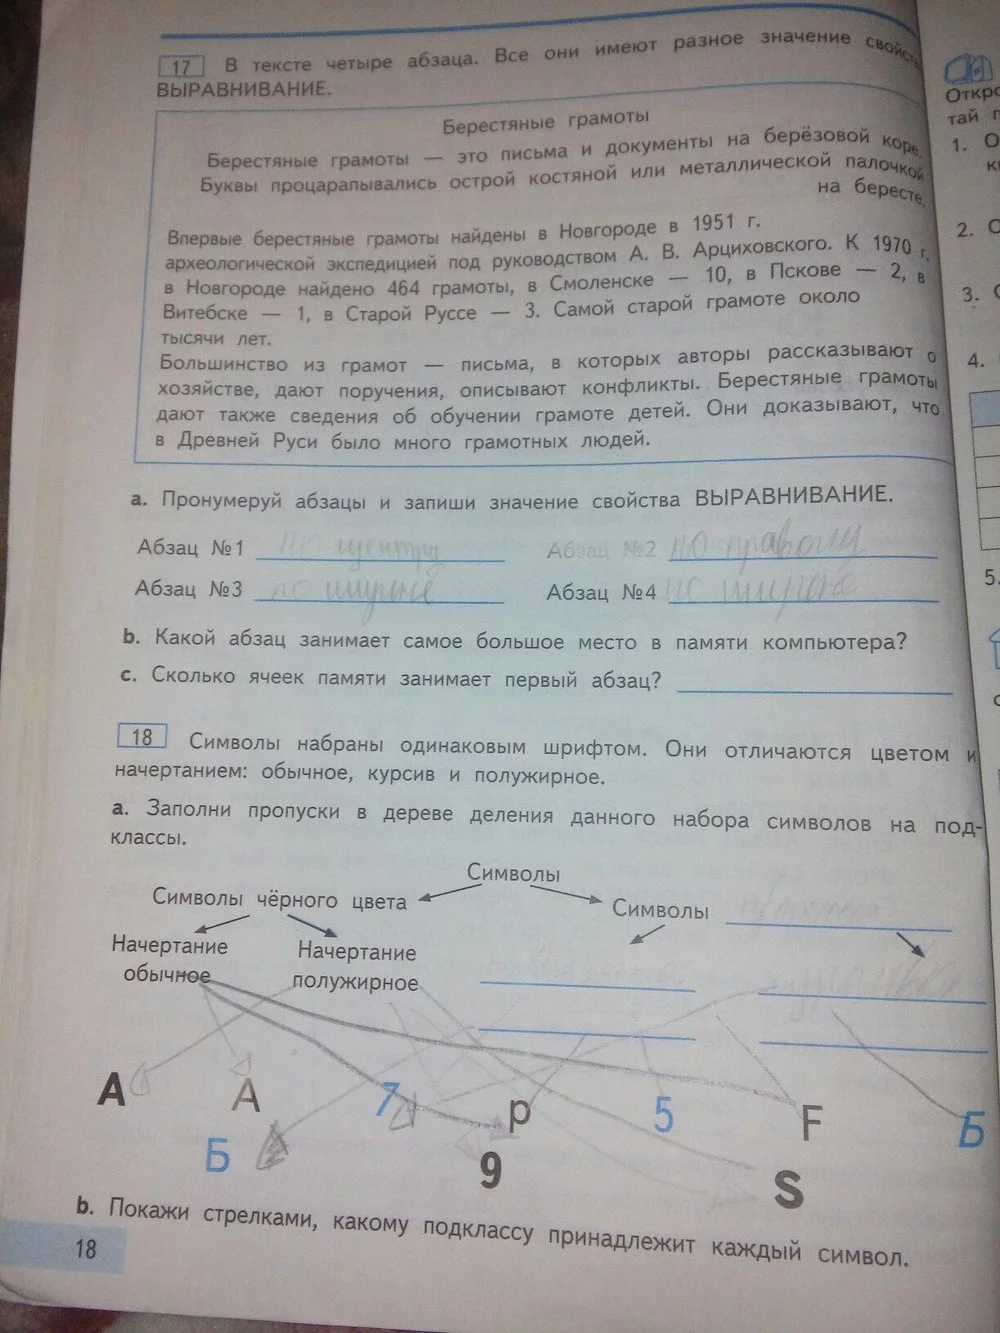 17 В тексте четыре абзаца. Все они имеют разное значение свойств
ВЫРАВНИВАНИЕ.
Берестяные грамоты
Берестяные грамоты — это письма и документы на берёзовой коре.
Буквы процарапывались острой костяной или металлической палочкой
на бересте.
Впервые берестяные грамоты найдены в Новгороде в 1951 г.
археологической экспедицией под руководством А. В. Арциховского. К 1970 г.
в Новгороде найдено 464 грамоты, в Смоленске — 10, в Пскове — 2, в
Витебске — 1, в Старой Руссе — 3. Самой старой грамоте около
тысячи лет.
Большинство из грамот — письма, в которых авторы рассказывают о
хозяйстве, дают поручения, описывают конфликты. Берестяные грамоты
дают также сведения об обучении грамоте детей. Они доказывают, что
в Древней Руси было много грамотных людей.
a. Пронумеруй абзацы и запиши значение свойства ВЫРАВНИВАНИЕ.
Абзац №1 по центру Абзац №2 по правому
Абзац №3 по ширине Абзац №4 по ширине
b. Какой абзац занимает самое большое место в памяти компьютера?
c. Сколько ячеек памяти занимает первый абзац?
18 Символы набраны одинаковым шрифтом. Они отличаются цветом и
начертанием: обычное, курсив и полужирное.
a. Заполни пропуски в дереве деления данного набора символов на под-
классы.
Символы
Символы чёрного цвета Символы
Начертание Начертание
обычное полужирное
A A 7 p 5 F Б
Б 9 S
b. Покажи стрелками, какому подклассу принадлежит каждый символ.
18
Откро
тай
1. О
2. С
3.
4.
5.